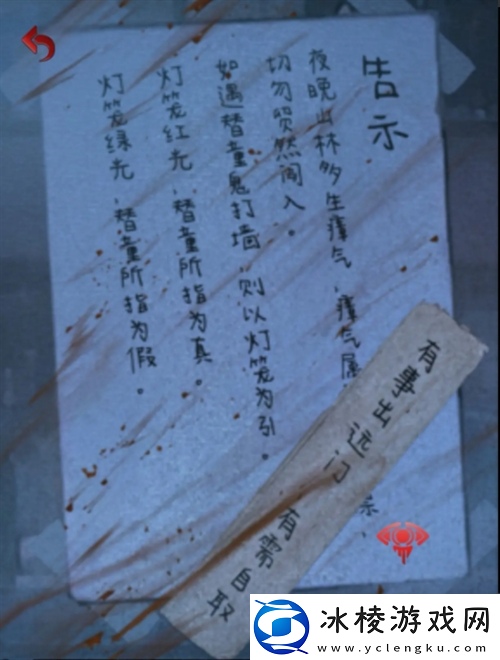 告示
夜晚山林多生瘴气，瘴气属
切勿贸然闯入。
如遇替童鬼打墙，则以灯笼为引。
灯笼红光，替童所指为真。
灯笼绿光，替童所指为假。
有事出远门
有需自取
冰棱游戏网
www.yclengku.com